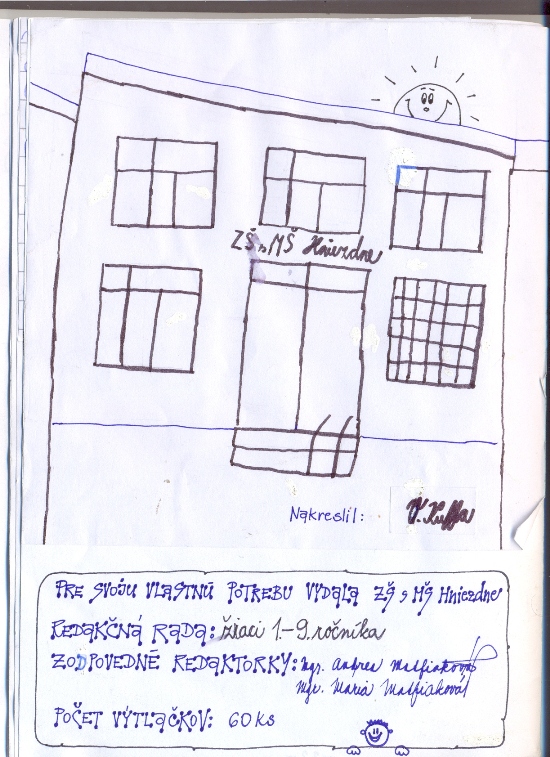 ZŠ s MŠ Hniezdne
Nakreslil: V. Kuffa
PRE SVOJU VLASTNÚ POTREBU VYDALA ZŠ s MŠ Hniezdne
REDAKČNÁ RADA: žiaci 1.-9. ročníka
ZODPOVEDNÉ REDAKTORKY: Mgr. Andrea
Mgr. Mária
POČET VÝTLAČKOV: 60 ks